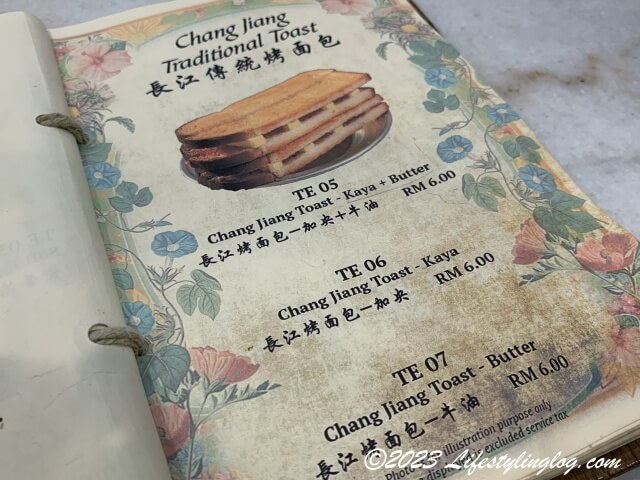 Chang Jiang
Traditional Toast
長江傳統烤面包
TE 05
Chang Jiang Toast - Kaya + Butter RM 6.00
長江烤面包一加央十牛油
TE 06
Chang Jiang Toast - Kaya RM 6.00
長江烤面包一加央
TE 07
Chang Jiang Toast - Butter RM 6.00
長江烤面包一牛油
illustration purpose only
excluded service tax
©2023 Lifestylinglog.com